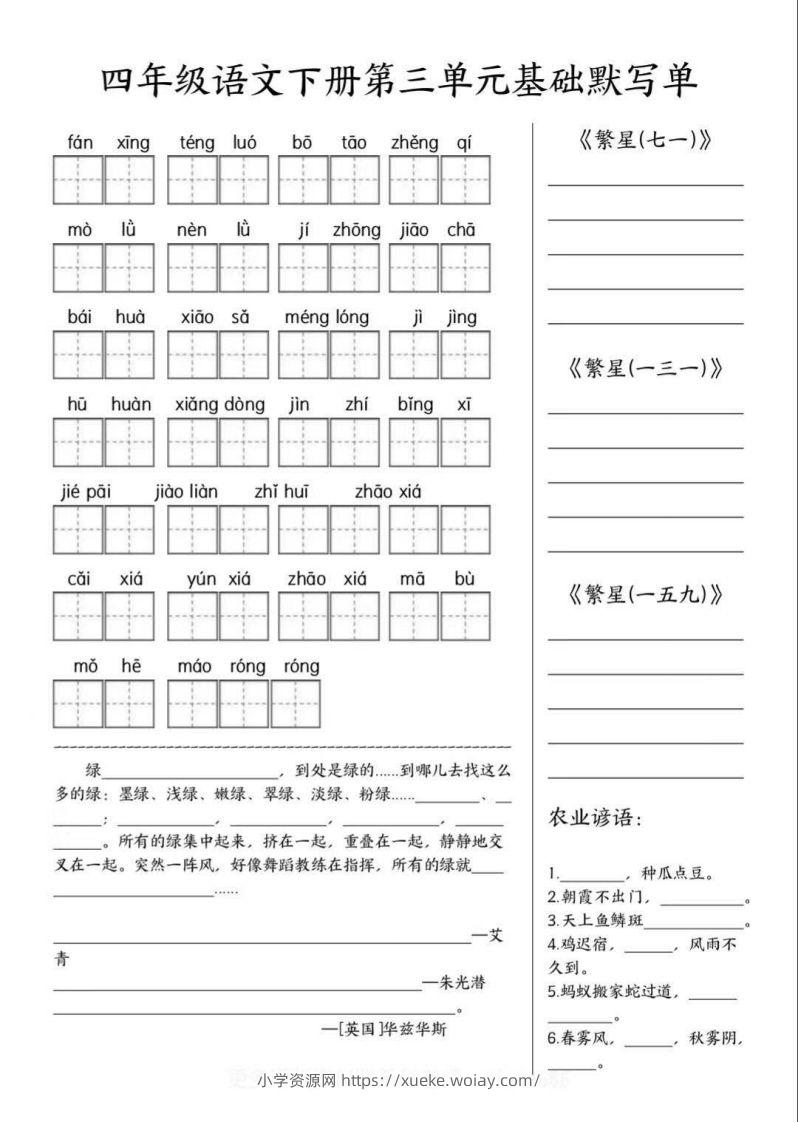 四年级语文下册第三单元基础默写单
fán xīng téng luó bō tāo zhěng qí
mò lǜ nèn lǜ jí zhōng jiāo chā
bái huà xiāo sǎ méng lóng jì jìng
hū huàn xiǎng dòng jìn zhí bǐng xī
jié pāi jiào liàn zhǐ huī zhāo xiá
cǎi xiá yún xiá zhāo xiá mā bù
mǒ hē máo róng róng
绿____________________，到处是绿的……到哪儿去找这么
多的绿：墨绿、浅绿、嫩绿、翠绿、淡绿、粉绿……________、__
______；____________，____________，____________，______
______。所有的绿集中起来，挤在一起，重叠在一起，静静地交
叉在一起。突然一阵风，好像舞蹈教练在指挥，所有的绿就____
____________________……
________________________________________—艾
青
________________________________________—朱光潜
________________________________________。
—[英国]华兹华斯
《繁星(七一)》
《繁星(一三一)》
《繁星(一五九)》
农业谚语：
1.________，种瓜点豆。
2.朝霞不出门，__________。
3.天上鱼鳞斑____________。
4.鸡迟宿，______，风雨不
久到。
5.蚂蚁搬家蛇过道，______
________。
6.春雾风，______，秋雾阴，
______。
小学资源网 https://xueke.woiay.com/